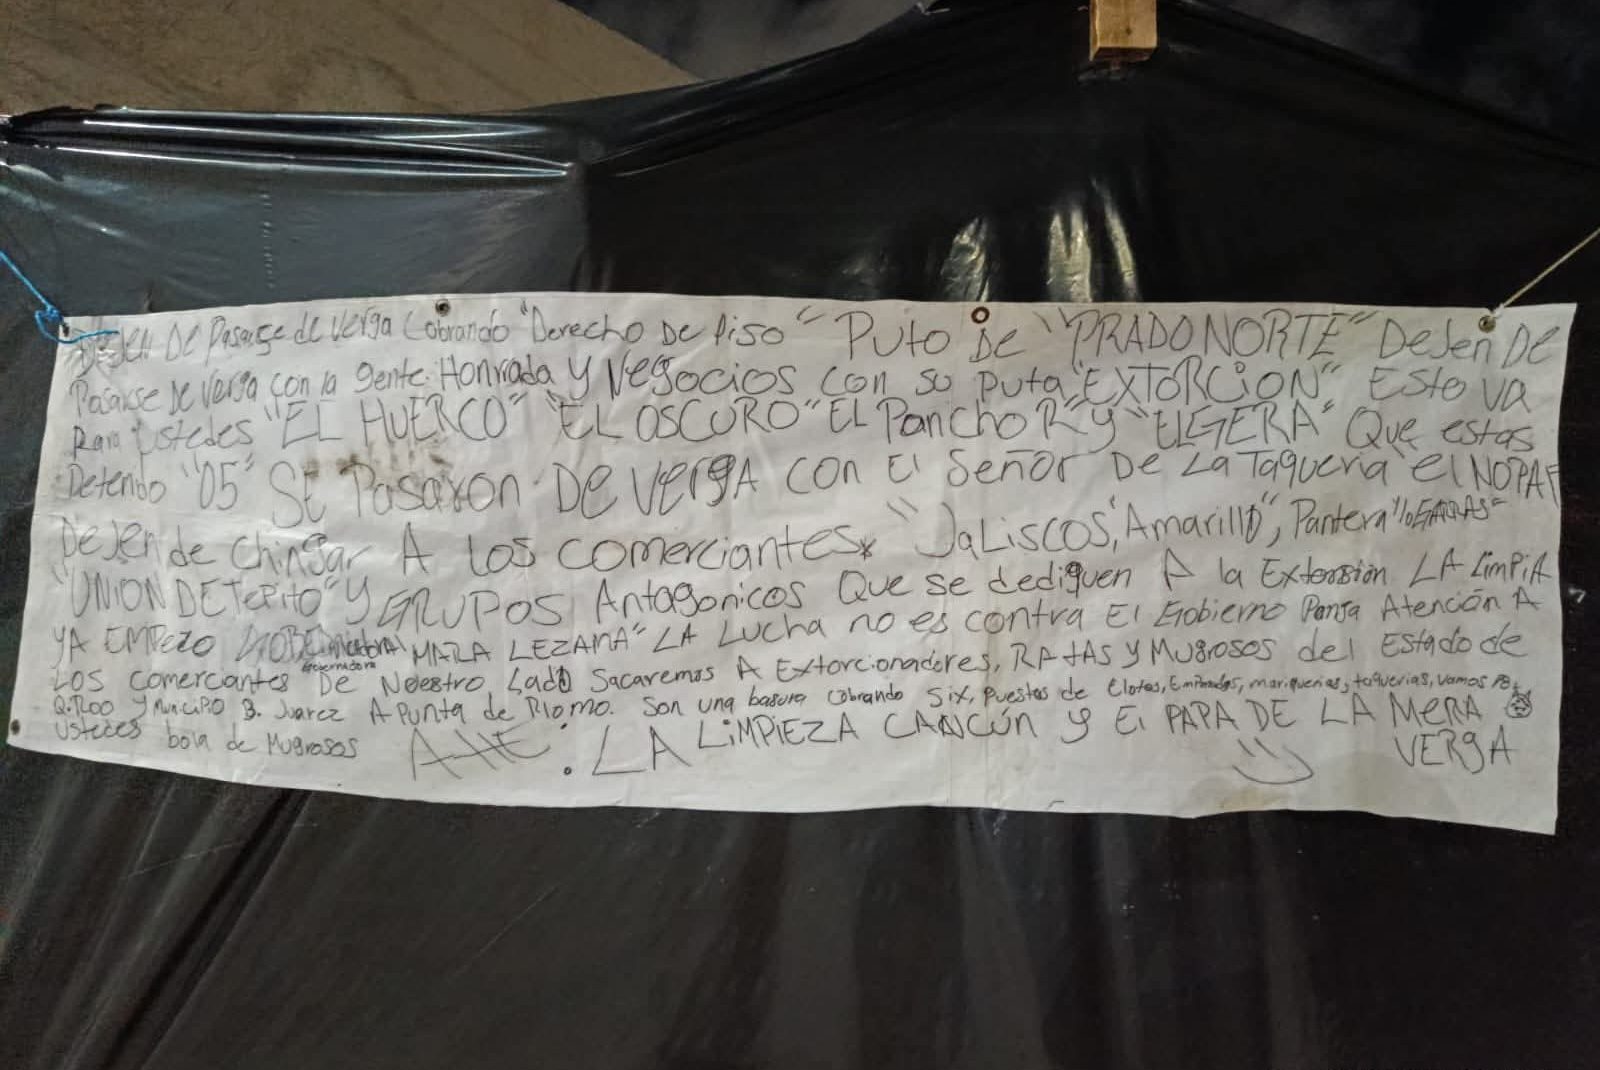 "DEJEN DE Pasarse de verga Cobrando "Derecho De Piso" PUTO De "PRADO NORTE" DeJen De
Pasarse De Verga con la gente Honrrada y Negocios con su puta "EXTORCION" Esto va
Para Ustedes "EL HUERCO" "EL OSCURO" "EL Pancho R" y "ELGERA" Que estas
Detenido "05" SE Pasaron De verga con El Señor De La Taqueria "el NOPAl
DeJen de Chingar A los comerciantes "JaLiscos, Amarillo", Pantera "GARRAS"
"UNION DE TEPITO" y GRUPOS Antagonicos Que se dediquen A la Extorsión LA LimPiA
YA EMPEZO MARA LEZAMA" LA Lucha no es contra El Gobierno Ponga Atención A
Gobernadora
Los comerciantes De Nuestro Lado Sacaremos A Extorcionadores, RATAS y Mugrosos del Estado de
Q.ROO y Municipio B. Juarez A Punta de Plomo. Son una basura Cobrando Six, Puestos de Elotes, Empanadas, mariquerias, taquerias, vamos Por
Ustedes bola de Mugrosos ATTE: LA LiMPiEZA CANCÚN y El PAPA DE LA MERA
VERGA